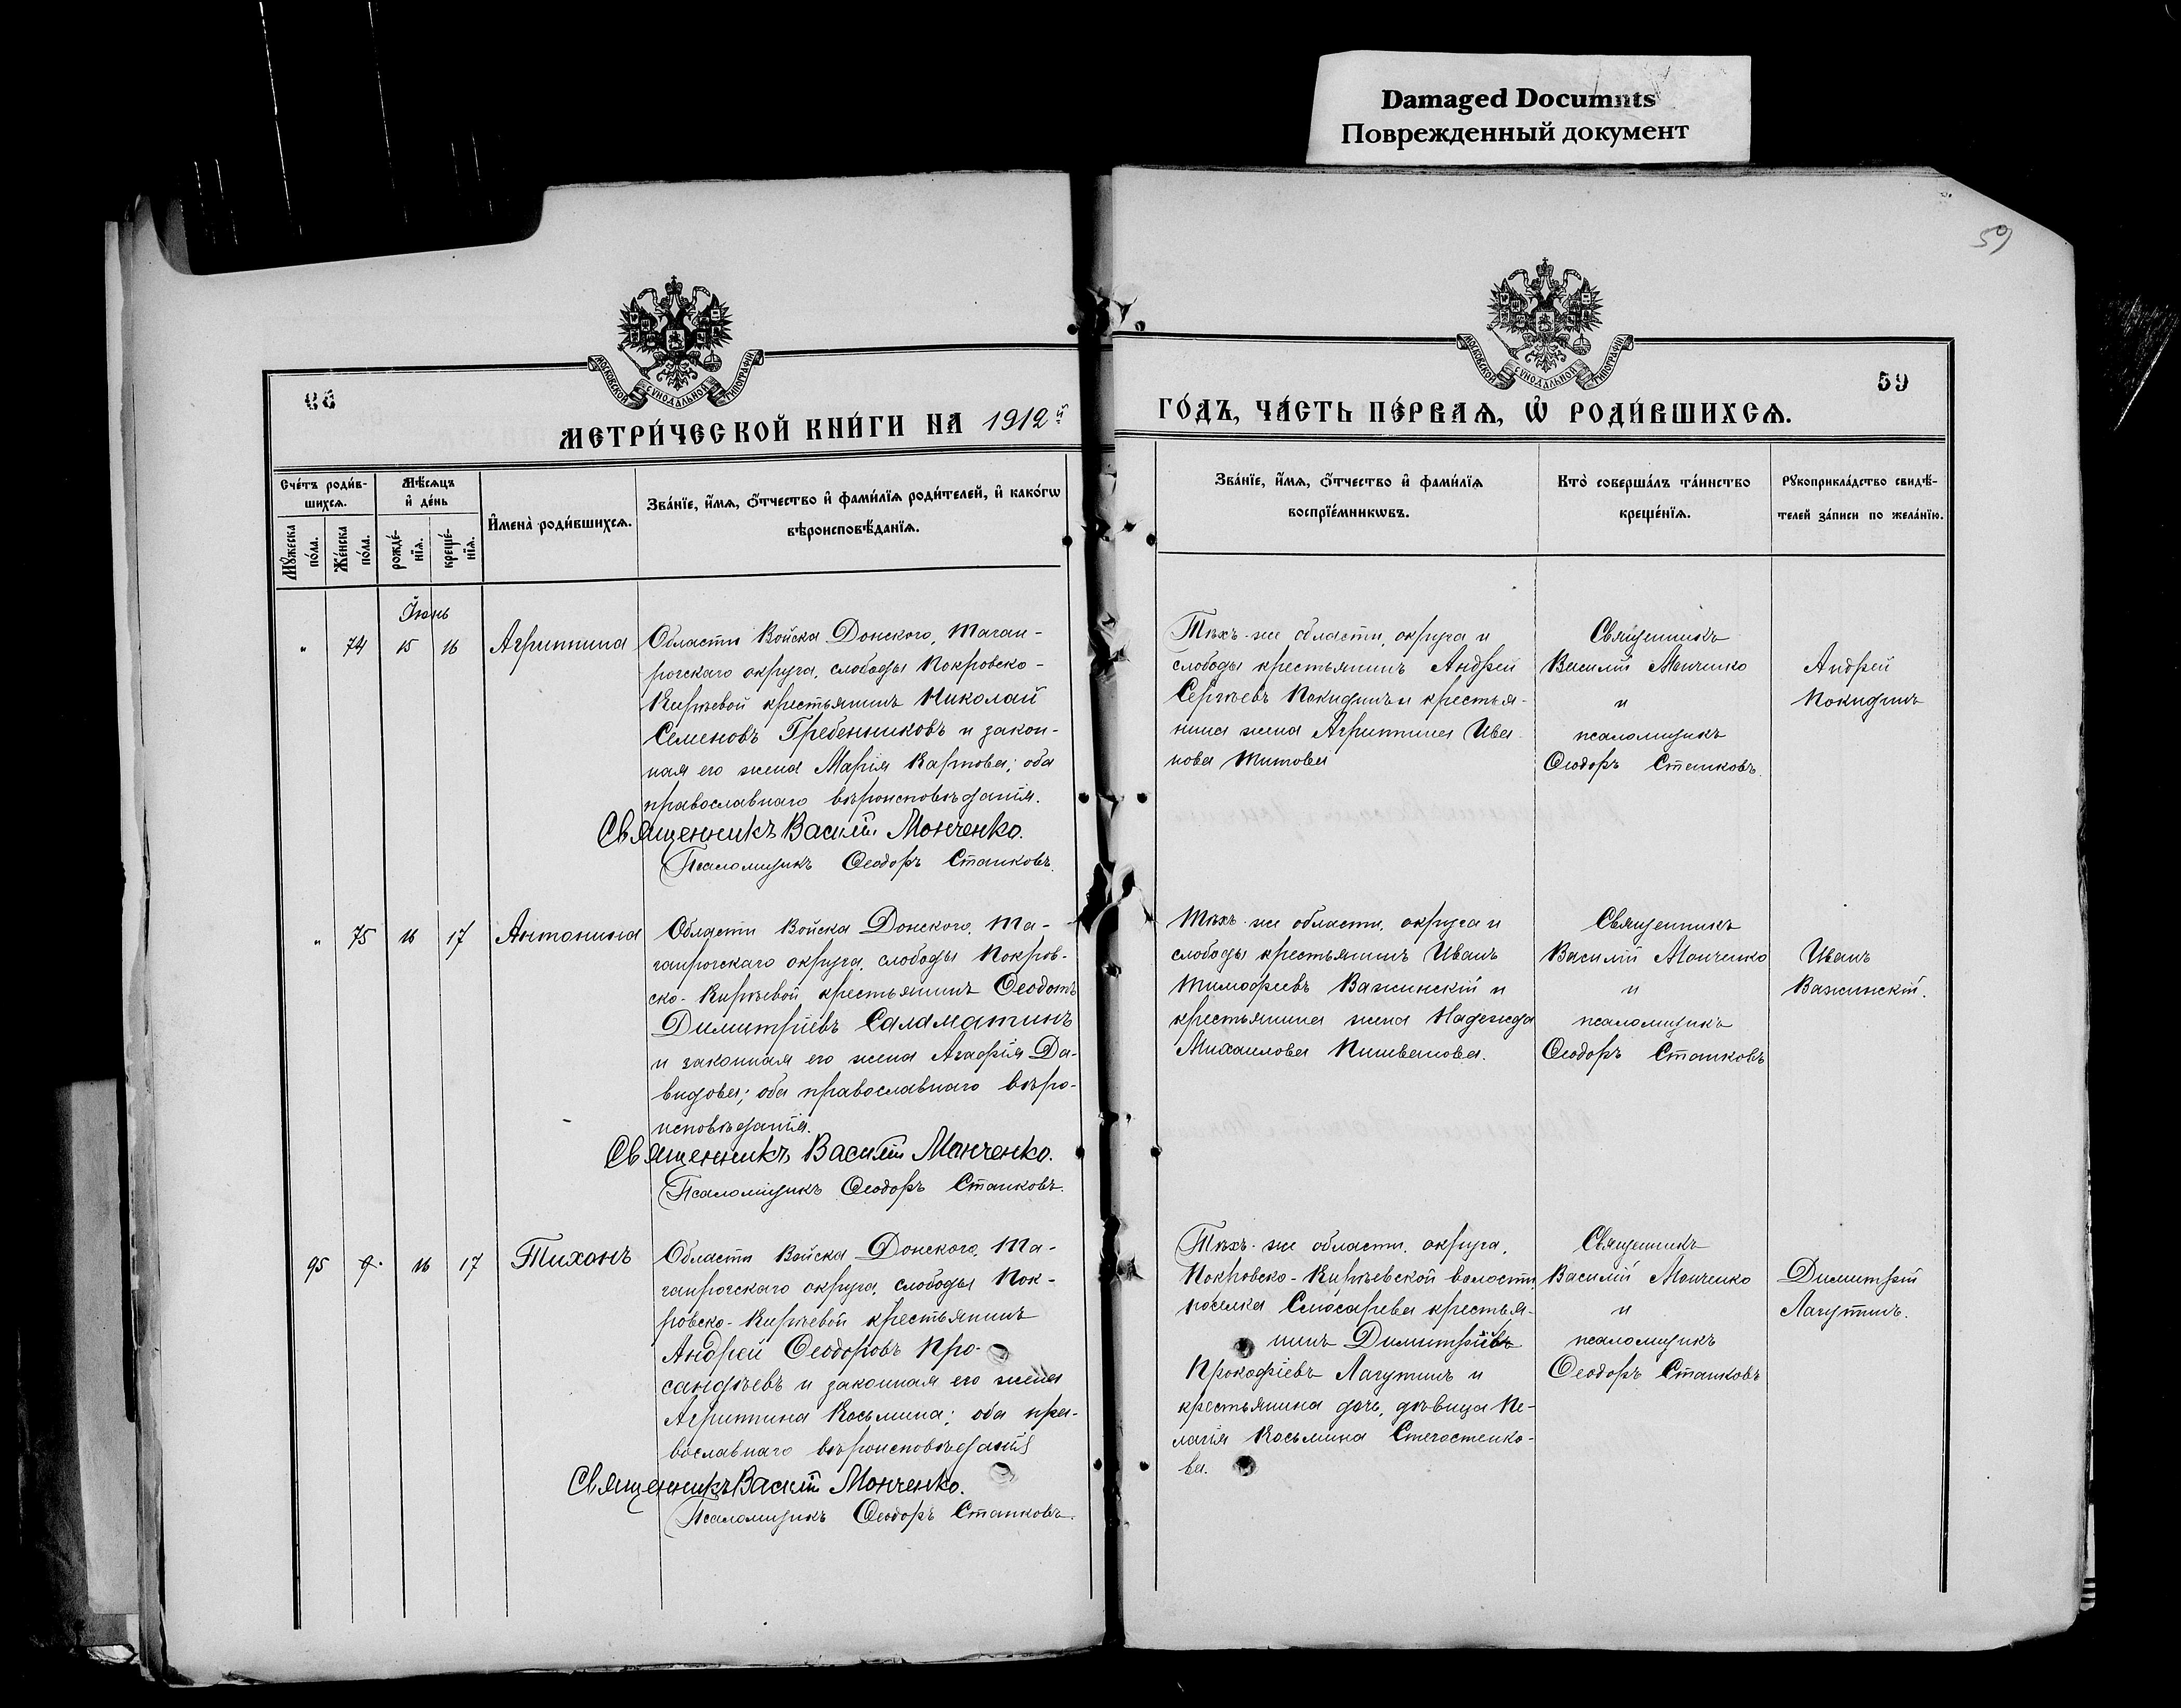 Damaged Documnts
Поврежденный документ
59
МОСКОВСКОЙ СѴНОДАЛЬНОЙ ТИПОГРАФІИ
МОСКОВСКОЙ СѴНОДАЛЬНОЙ ТИПОГРАФІИ
59
МЕТРИ́ЧЕСКОЙ КНИ́ГИ НА 1912й
ГО́ДЪ, ЧА́СТЬ ПЕ́РВАѦ, Ѡ҆ РОДИ́ВШИХСѦ.
Сче́тъ роди́в-
шихсѧ.
Мꙋ́жеска по́ла.
Же́нска по́ла.
Мѣ́сѧцъ
и҆ де́нь
рожде́-нїѧ.
креще́-нїѧ.
И҆мена̀ роди́вшихсѧ.
Зва́нїе, и҆́мѧ, ѻ҆́тчество и҆ фами́лїѧ роди́телей, и҆ како́гѡ
вѣроисповѣ́данїѧ.
Зва́нїе, и҆́мѧ, ѻ҆́тчество и҆ фами́лїѧ
воспрїе́мникѡвъ.
Кто̀ соверша́лъ та́инство
креще́нїѧ.
Рꙋкоприкла́дство свидѣ́-
телей за́писи по жела́нїю.
Іюнь
" 74 15 16 Агриппина
Области Войска Донского, Таган-
рогскаго округа, слободы Покровско-
Кирѣевой крестьянинъ Николай
Семеновъ Гребенниковъ и закон-
ная его жена Марія Карпова; оба
православнаго вѣроисповѣданія.
Священникъ Василій Монченко.
Псаломщикъ Ѳеодоръ Станковъ.
Тѣхъ-же области, округа и
слободы крестьянинъ Андрей
Сергѣевъ Покидинъ и крестья-
нина жена Агриппина Ива-
нова Титова
Священникъ
Василій Монченко
и
псаломщикъ
Ѳеодоръ Станковъ.
Андрей
Покидинъ
" 75 16 17 Антонина
Области Войска Донского, Та-
ганрогскаго округа, слободы Покров-
ско-Кирѣевой, крестьянинъ Ѳеодотъ
Димитріевъ Саламатинъ
и законная его жена Агафія Да-
видова; оба православнаго вѣро-
исповѣданія.
Священникъ Василій Монченко.
Псаломщикъ Ѳеодоръ Станковъ.
Тѣхъ-же области, округа и
слободы крестьянинъ Иванъ
Тимофеевъ Важинскій и
крестьянина жена Надежда
Михаилова
Священникъ
Василій Монченко
и
псаломщикъ
Ѳеодоръ Станковъ
Иванъ
Важинскій.
95 16 17 Тихонъ
Области Войска Донского, Та-
ганрогскаго округа, слободы Пок-
ровско-Кирѣевой крестьянинъ
Андрей Ѳеодоровъ Про-
сандѣевъ и законная его жена
Агриппина Косьмина; оба пра-
вославнаго вѣроисповѣданія
Священникъ Василій Монченко.
Псаломщикъ Ѳеодоръ Станковъ.
Тѣхъ-же области, округа,
Покровско-Кирѣевской волости,
поселка Слюсарева крестья-
нинъ Димитрій
Прокофіевъ Лагутинъ и
крестьянина дочь, дѣвица Пе-
лагія Косьмина
ва.
Священникъ
Василій Монченко
и
псаломщикъ
Ѳеодоръ Станковъ
Димитрій
Лагутинъ.